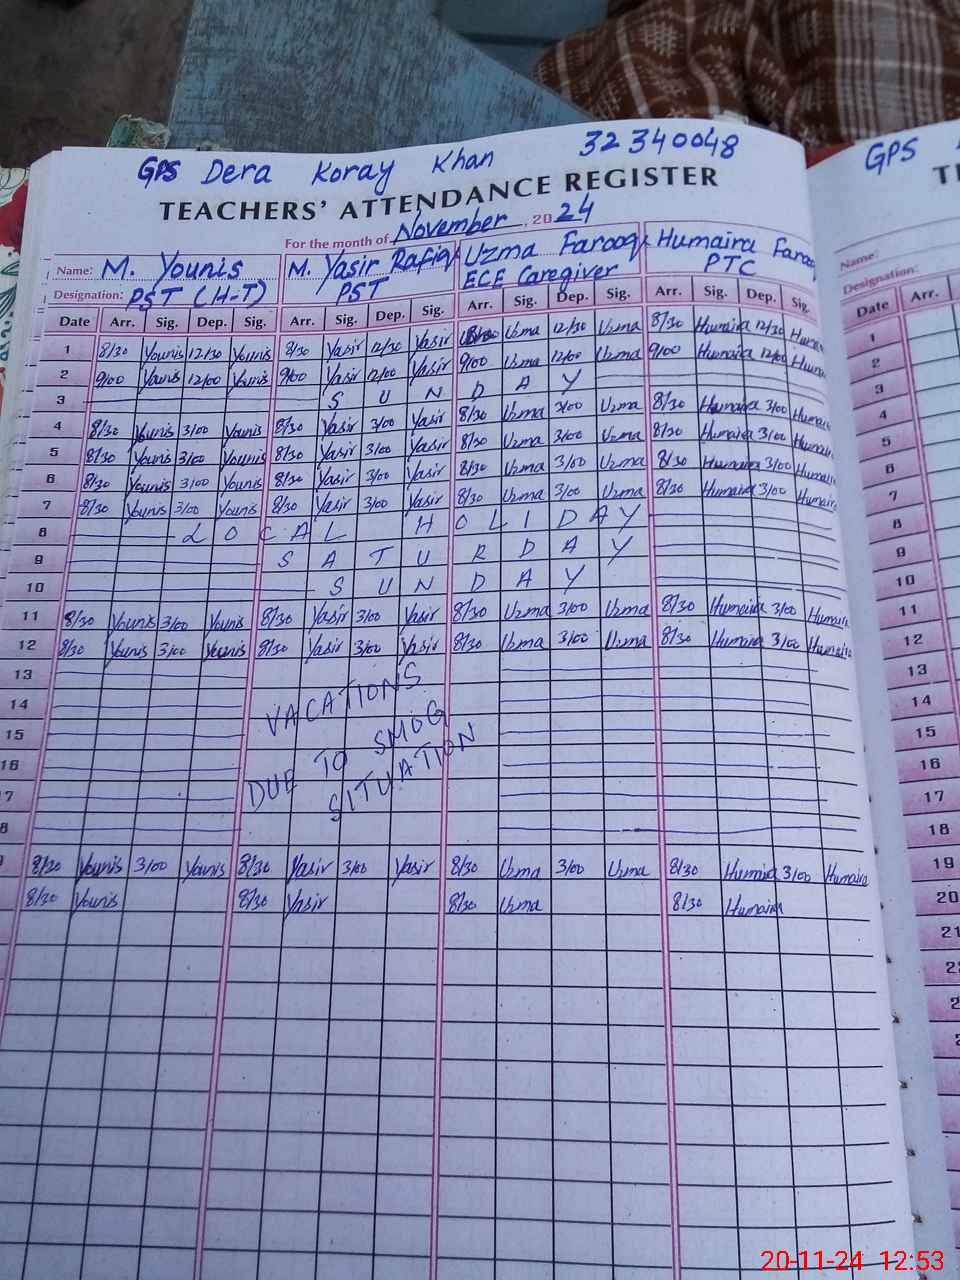 GPS Dera Koray Khan 32340048
TEACHERS' ATTENDANCE REGISTER
For the month of November, 2024
Name: M. Younis M. Yasir Rafiq Uzma Farooq Humaira Farooq
Designation: PST (H-T) PST ECE Caregiver PTC
Date Arr. Sig. Dep. Sig. Arr. Sig. Dep. Sig. Arr. Sig. Dep. Sig. Arr. Sig. Dep. Sig.
1 8/30 Younis 12/30 Younis 8/30 Yasir 12/30 Yasir 8/30 Uzma 12/30 Uzma 8/30 Humaira 12/30 Humaira
2 9/00 Younis 12/00 Younis 9/00 Yasir 12/00 Yasir 9/00 Uzma 12/00 Uzma 9/00 Humaira 12/00 Humaira
3 S U N D A Y
4 8/30 Younis 3/00 Younis 8/30 Yasir 3/00 Yasir 8/30 Uzma 3/00 Uzma 8/30 Humaira 3/00 Humaira
5 8/30 Younis 3/00 Younis 8/30 Yasir 3/00 Yasir 8/30 Uzma 3/00 Uzma 8/30 Humaira 3/00 Humaira
6 8/30 Younis 3/00 Younis 8/30 Yasir 3/00 Yasir 8/30 Uzma 3/00 Uzma 8/30 Humaira 3/00 Humaira
7 8/30 Younis 3/00 Younis 8/30 Yasir 3/00 Yasir 8/30 Uzma 3/00 Uzma 8/30 Humaira 3/00 Humaira
8 L O C A L H O L I D A Y
9 S A T U R D A Y
10 S U N D A Y
11 8/30 Younis 3/00 Younis 8/30 Yasir 3/00 Yasir 8/30 Uzma 3/00 Uzma 8/30 Humaira 3/00 Humaira
12 8/30 Younis 3/00 Younis 8/30 Yasir 3/00 Yasir 8/30 Uzma 3/00 Uzma 8/30 Humaira 3/00 Humaira
13
14 VACATIONS
15
16 DUE TO SMOG
17 SITUATION
18
19 8/30 Younis 3/00 Younis 8/30 Yasir 3/00 Yasir 8/30 Uzma 3/00 Uzma 8/30 Humaira 3/00 Humaira
8/30 Younis 8/30 Yasir 8/30 Uzma 8/30 Humaira
GPS
Name:
Designation:
Date Arr.
1
2
3
4
5
6
7
8
9
10
11
12
13
14
15
16
17
18
19
20
21
20-11-24 12:53